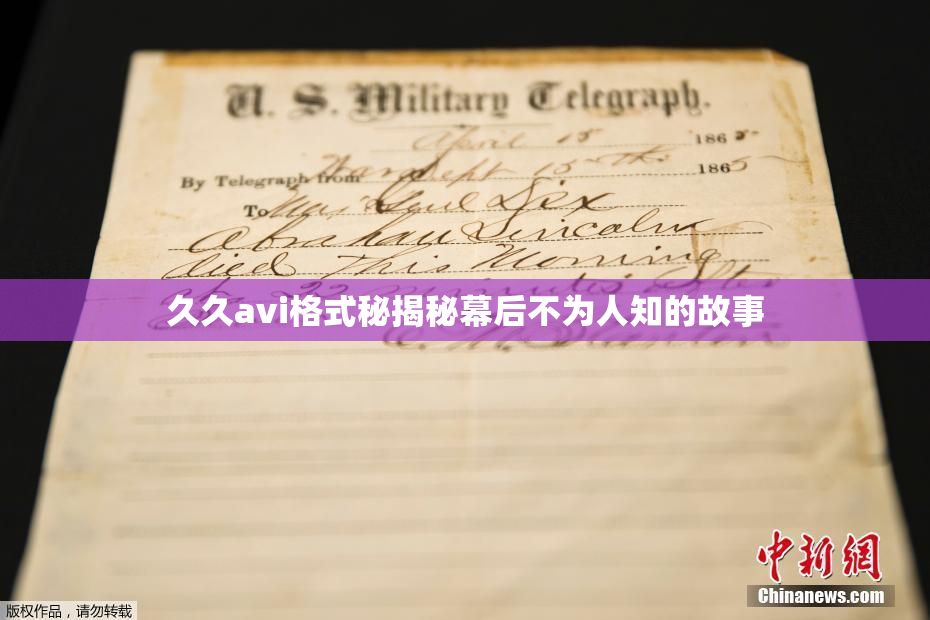 U. S. Military Telegraph.
April 15 1865
By Telegraph from War Dept 15th 1865
To Maj Genl Dix
Abraham Lincoln
died This Morning
at 22 minutes after
久久avi格式秘揭秘幕后不为人知的故事
E. M. Stanton
中新网
Chinanews.com
版权作品，请勿转载